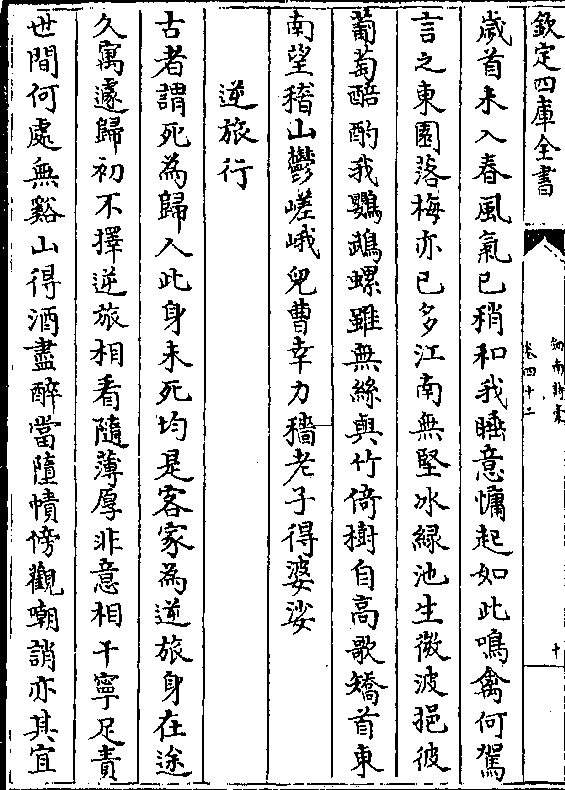 欽定四庫全書
劍南詩稾
卷四十二
十
歲首未入春風氣已稍和我睡意慵起如此鳴禽何駕
言之東園落梅亦已多江南無堅冰緑池生微波挹彼
葡萄醅酌我鸚鵡螺雖無絲與竹倚樹自高歌矯首東
南望稽山鬱嵯峨兒曹幸力穡老子得婆娑
逆旅行
古者謂死為歸人此身未死均是客家為逆旅身在途
久寓遽歸初不擇逆旅相看隨薄厚非意相干寧足責
世間何處無谿山得酒盡醉當墮幘傍觀嘲誚亦其宜